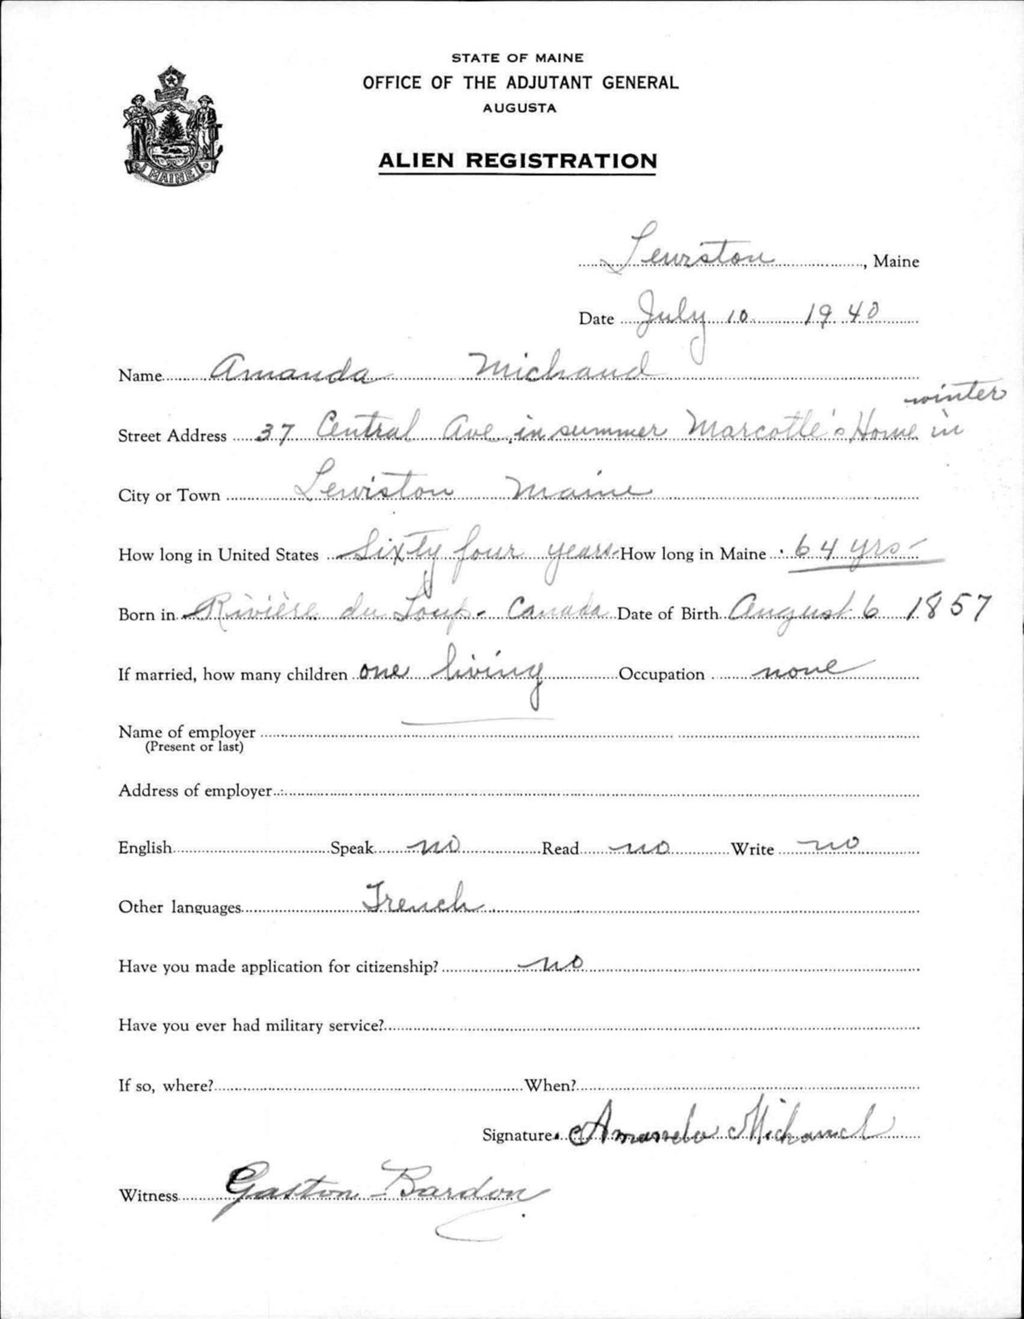 STATE OF MAINE
OFFICE OF THE ADJUTANT GENERAL
AUGUSTA
ALIEN REGISTRATION
MAINE
Lewiston, Maine
Date July 10 1940
Name Amanda Michaud
winter
Street Address 37 Central Ave, in summer Marcotte's Home in
City or Town Lewiston Maine
How long in United States Sixty four years How long in Maine 64 yrs
Born in Rivière du Loup - Canada Date of Birth August 6 1857
If married, how many children one living Occupation none
Name of employer
(Present or last)
Address of employer
English Speak no Read no Write no
Other languages French
Have you made application for citizenship? no
Have you ever had military service?
If so, where? When?
Signature Amanda Michaud
Witness Gaston Bardon